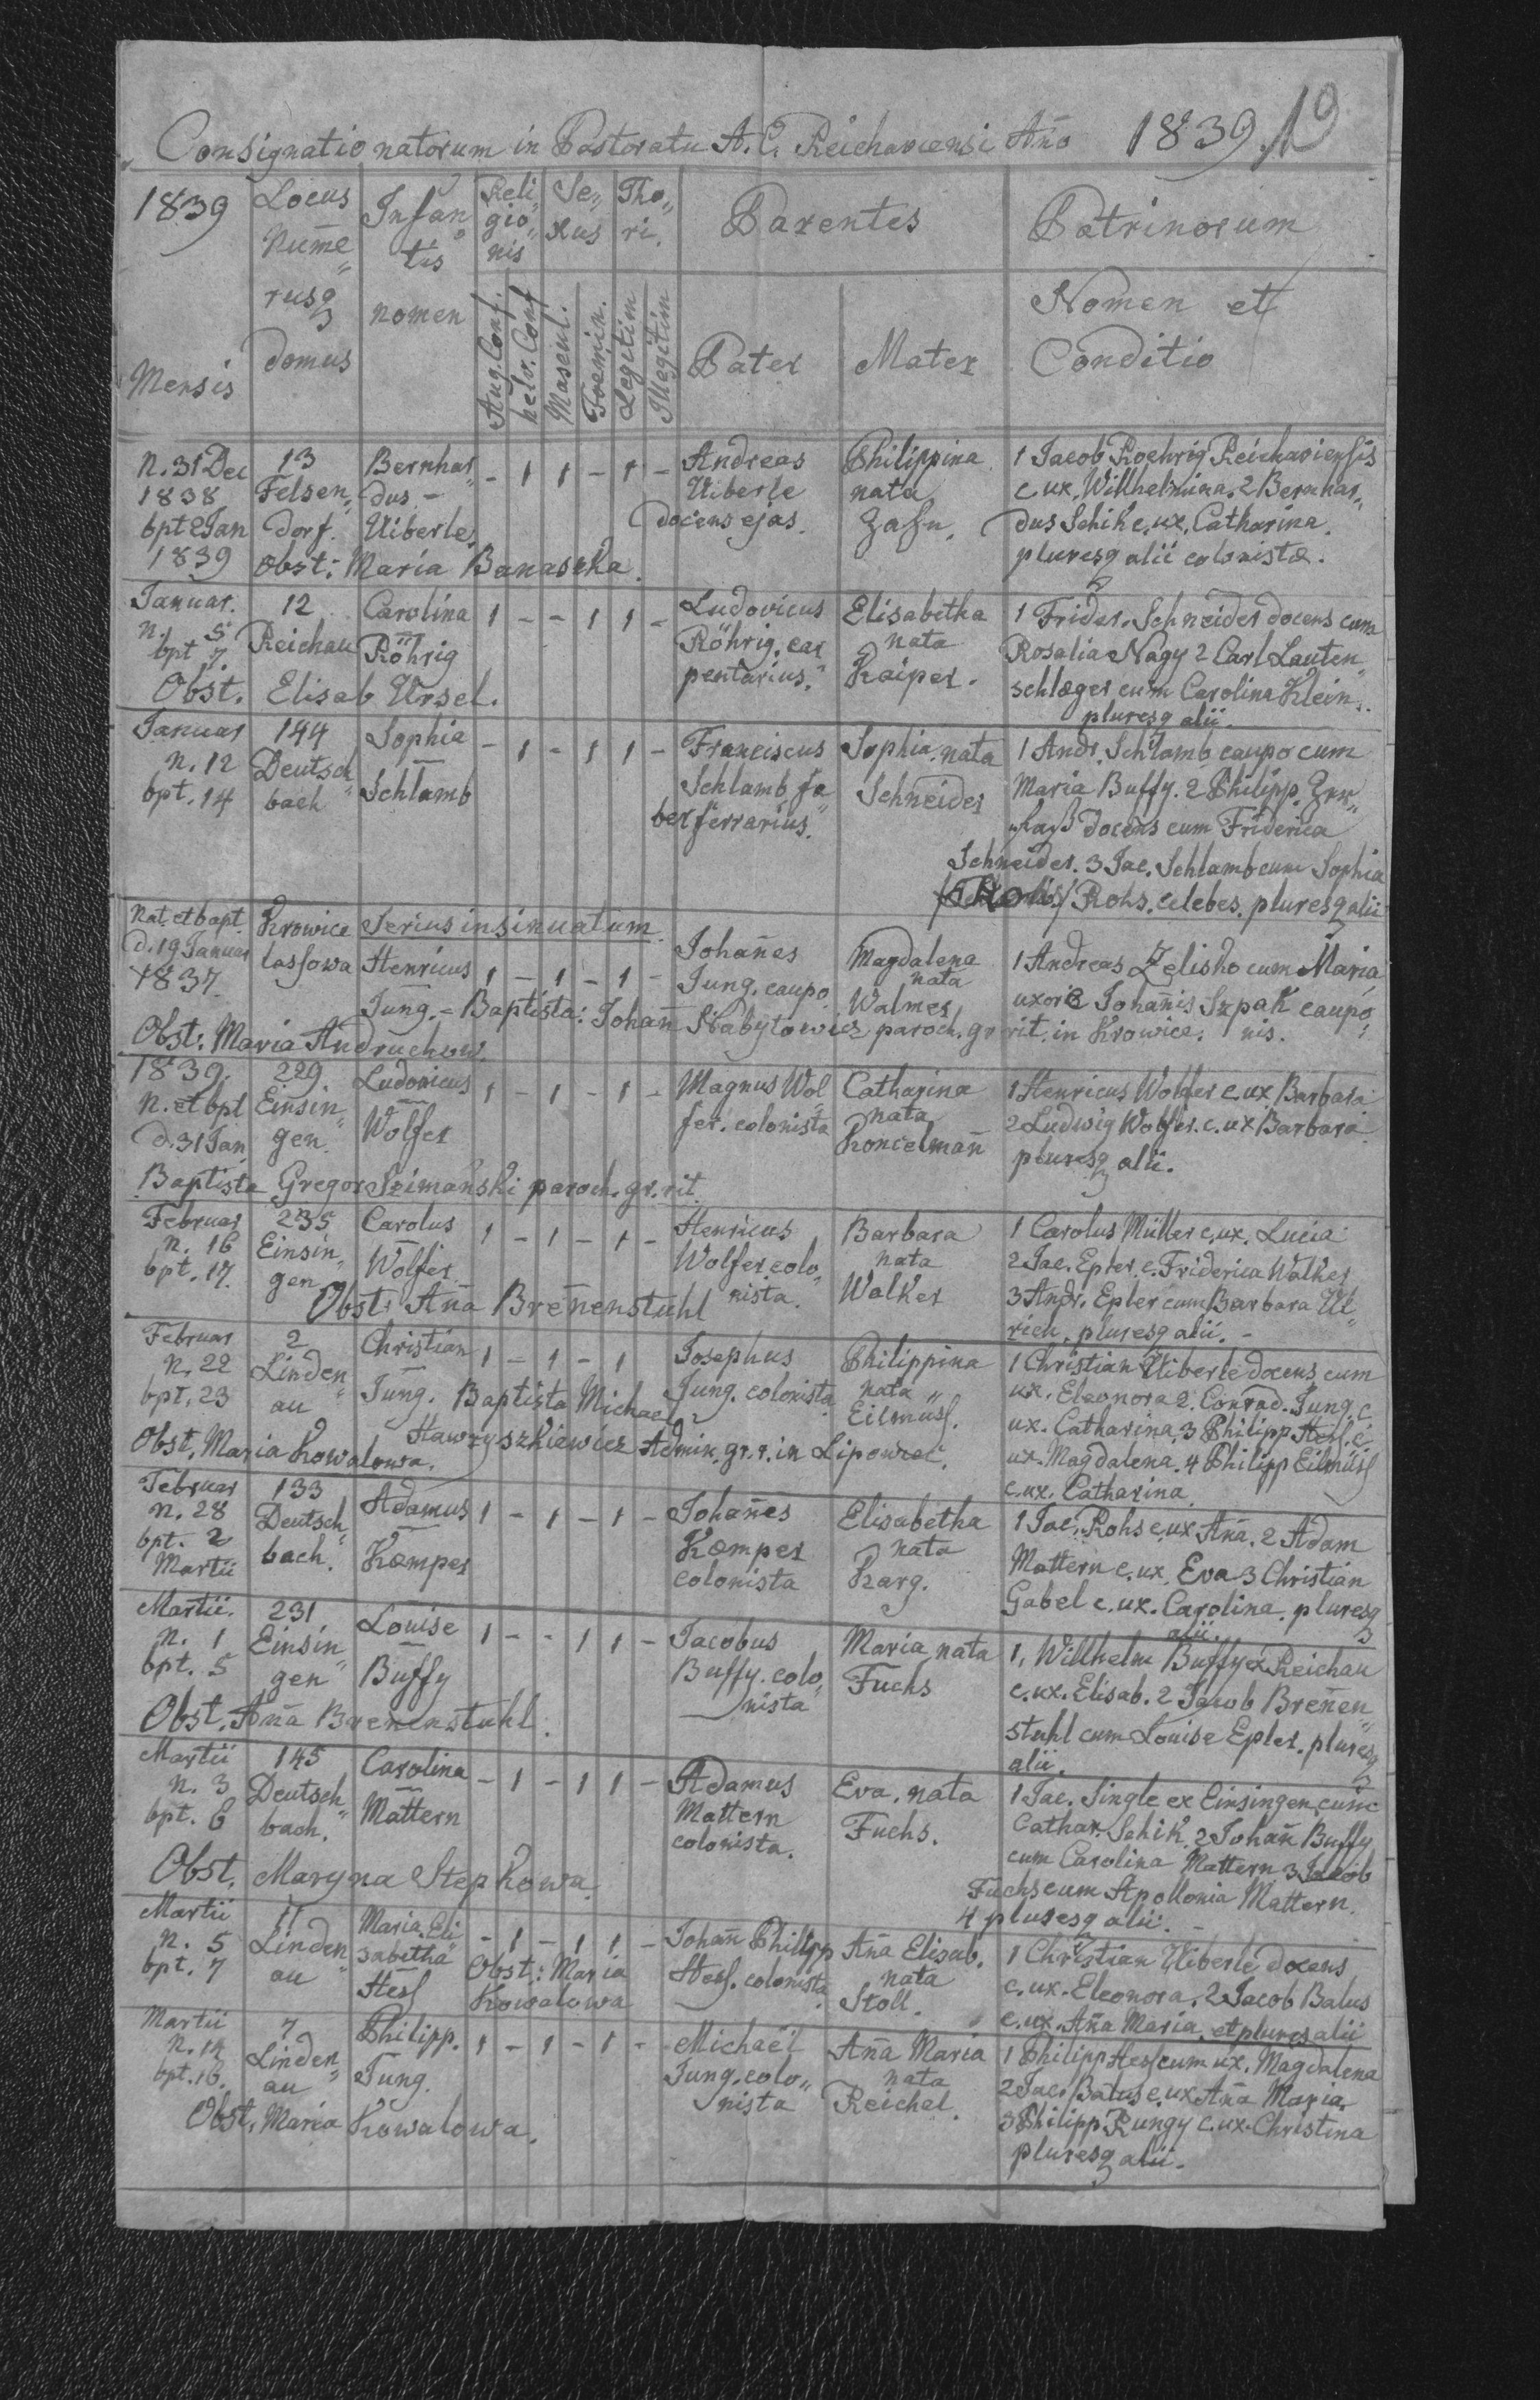 Consignatio natorum in Pastoratu A. C. Reichaviensi Año 1839.
1839
Mensis
Locus
Nume„
rusq
domus
Infan„
tis
nomen
Reli„
gio„
nis
Aug. Conf.
helv. Conf
Se„
xus
Mascul.
Foemin.
Tho„
ri.
Legitim
Illegitim
Parentes
Pater
Mater
Patrinorum
Nomen et
Conditio
N. 31 Dec
1838
bpt 2 Jan
1839
13
Felsen„
dorf.
Bernhar„
dus –
Uiberle
- 1 1 - 1 -
Andreas
Uiberle
docens ejas.
Philippina
nata
Zahn.
1 Jacob Roehrig Reichaviensis
c ux. Wilhelmina. 2 Bernhar„
dus Schik c. ux. Catharina.
pluresq alii colonistæ.
Obst: Maria Banaszka.
Januar.
n. 5
bpt 7.
12
Reichau
Carolina
Röhrig
1 - - 1 1 -
Ludovicus
Röhrig. car
pentarius.
Elisabetha
nata
Kaiper.
1 Frider. Schneider docens cum
Rosalia Nagy 2 Carl Lauten„
schlæger cum Carolina Klein.
pluresq alii.
Obst. Elisab Ursel.
Januar
n. 12
bpt. 14
144
Deutsch„
bach
Sophia
Schlamb
- 1 - 1 1 -
Franciscus
Schlamb fa„
ber ferrarius.
Sophia nata
Schneider
1 Andr. Schlamb caupo cum
Maria Buffy. 2 Philipp
docens cum Friderica
Schneider. 3 Jac. Schlamb cum Sophia
Rohs. celebes. pluresq alii
Nat. et bapt.
d. 19 Januar
1837.
Krowica
lassowa
Serius insinuatum.
Henricus
Jung. –
1 - 1 - 1 -
Johañes
Jung. caupo.
Magdalena
nata
Walmer
1 Andreas Zelisko cum Maria
uxore Johañis Szpak caupo„
nis.
Baptista: Johañ Nabytowicz paroch. gr rit. in Krowica.
Obst. Maria Andruchow.
1839.
n. et bpt
d. 31 Jan
229.
Einsin„
gen.
Ludovicus
Wolfer
1 - 1 - 1 -
Magnus Wol„
fer. colonista
Catharina
nata
Koncelmañ
1 Henricus Wolfer c. ux Barbara
2 Ludwig Wolfer. c. ux Barbara
pluresq alii.
Baptista Gregor Szimañski paroch. gr. rit.
Februar
n. 16
bpt. 17.
235
Einsin„
gen
Carolus
Wolfer
1 - 1 - 1 -
Henricus
Wolfer colo„
nista.
Barbara
nata
Walker
1 Carolus Müller c. ux. Lucia
2 Jac. Epler. c. Friderica Walker
3 Andr. Epler cum Barbara Ul„
rich. pluresq alii. –
Obst. Aña Breñenstuhl
Februar
n. 22
bpt. 23
2
Linden„
au
Christian
Jung.
1 - 1 - 1
Josephus
Jung. colonista
Philippina
nata
Eilmüs.
1 Christian Uiberle docens cum
ux. Eleonora 2. Conrad. Jung c
ux. Catharina. 3 Philipp Hess. c
ux. Magdalena. 4 Philipp Eilmüss
c. ux. Catharina
Baptista Michael
Hawryszkiewicz Admin. gr. r. in Lipowiec.
Obst. Maria Kowalowa.
Februar
n. 28
bpt. 2
Martii
133
Deutsch„
bach.
Adamus
Kæmper
1 - 1 - 1 -
Johañes
Kæmper
colonista
Elisabetha
nata
Karg.
1 Jac. Rohs c. ux Aña. 2 Adam
Mattern c. ux. Eva 3 Christian
Gabel c. ux. Carolina. pluresq
alii.
Martii.
n. 1
bpt. 5
231
Einsin„
gen
Louise
Buffy
1 - - 1 1 -
Jacobus
Buffy. colo„
nista
Maria nata
Fuchs
1, Willhelm Buffy ex Reichau
c. ux. Elisab. 2 Jacob Breñen„
stuhl cum Louise Epler. pluresq
alii.
Obst. Aña Breñenstuhl.
Martii
n. 3
bpt. 6
145
Deutsch„
bach.
Carolina
Mattern
- 1 - 1 1 -
Adamus
Mattern
colonista.
Eva. nata
Fuchs.
1 Jac. Single ex Einsingen cum
Cathar. Schik. 2 Johañ Buffy
cum Carolina Mattern 3 Jacob
Fuchs cum Apollonia Mattern.
4 pluresq alii. –
Obst. Maryna Stepkowa.
Martii
n. 5
bpt. 7
11
Linden„
au
Maria. Eli„
sabetha
Hess
- 1 - 1 1 -
Obst: Maria
Kowalowa
Johañ Philipp
Hess. colonista.
Aña Elisab.
nata
Stoll.
1 Christian Uiberle docens
c. ux. Eleonora. 2 Jacob Balus
c. ux. Aña Maria. et plures alii
Martii
n. 14
bpt. 16.
7
Linden„
au
Philipp.
Jung.
1 - 1 - 1 -
Michaël
Jung. colo„
nista
Aña Maria
nata
Reichel.
1 Philipp Hess cum ux. Magdalena
2 Jac. Balus c. ux Aña Maria.
3 Philipp Rungy c. ux. Christina
pluresq alii.
Obst. Maria Kowalowa.